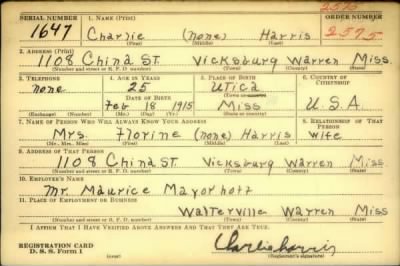 2575
SERIAL NUMBER 1. NAME (Print) ORDER NUMBER
1647 Charlie (none) Harris 2575
(First) (Middle) (Last)
2. ADDRESS (Print)
1108 China ST. Vicksburg Warren Miss.
(Number and street or R. F. D. number) (Town) (County) (State)
3. TELEPHONE 4. AGE IN YEARS 5. PLACE OF BIRTH 6. COUNTRY OF CITIZENSHIP
none 25 Utica
DATE OF BIRTH (Town or county)
Feb 18 1915 Miss U.S.A
(Exchange) (Number) (Mo.) (Day) (Yr.) (State or country)
7. NAME OF PERSON WHO WILL ALWAYS KNOW YOUR ADDRESS 8. RELATIONSHIP OF THAT PERSON
Mrs. Florine (none) Harris wife
(Mr., Mrs., Miss) (First) (Middle) (Last)
9. ADDRESS OF THAT PERSON
1108 China ST. Vicksburg Warren Miss
(Number and street or R. F. D. number) (Town) (County) (State)
10. EMPLOYER'S NAME
Mr. Maurice Mayorhoff
11. PLACE OF EMPLOYMENT OR BUSINESS
Walterville Warren Miss
(Number and street or R. F. D. number) (Town) (County) (State)
I AFFIRM THAT I HAVE VERIFIED ABOVE ANSWERS AND THAT THEY ARE TRUE.
REGISTRATION CARD
D. S. S. Form 1 Charlie harris
(Registrant's signature)